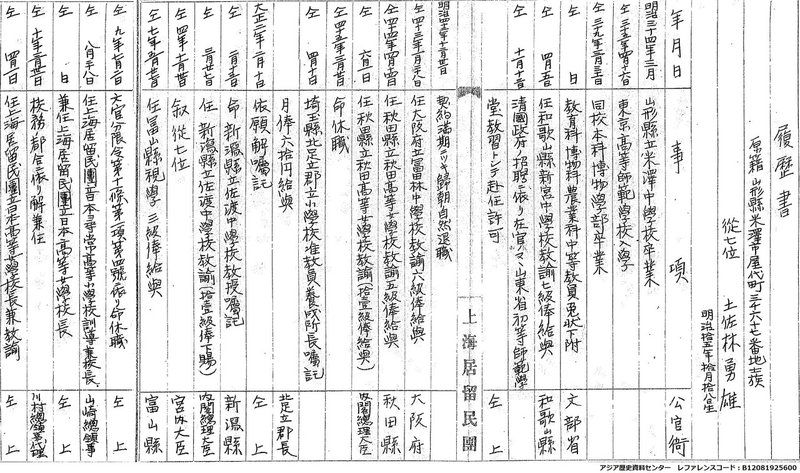 履歴書
原籍 山形縣米澤市屋代町三千六十七番地士族
從七位 土佐林勇雄
明治拾五年拾月拾八日生
年月日 事項 公官衙
明治三十四年三月 山形縣立米澤中學校卒業
仝三十五年四月十六日 東京高等師範學校入學
仝三九年三月三十日 同校本科博物學部卒業
仝 日 教育科博物科農業科中等教員免狀下附 文部省
仝 四月五日 任和歌山縣新宮中學校教諭七級俸給與 和歌山縣
仝 十一月十三日 清國政府ノ招聘ニ依リ在官ノママ山東省初等師範學
堂教習トシテ赴任許可 仝上
上海居留民團
契約満期ニツキ歸朝自然退職
仝四十三年 任大阪府立富田林中學校教諭六級俸給與 大阪府
仝四十四年四月 任秋田縣立秋田高等女學校教諭五級俸給與 秋田縣
仝 六月 任秋田縣立秋田高等女學校教諭(拾壹級俸給與) 内閣總理大臣
仝四十五年三月 命休職
仝 四月十日 埼玉縣北足立郡立小學校准教員養成所長囑託
月俸六拾円給與 北足立郡長
大正二年二月十日 依願解囑託 仝上
仝 命新潟縣立佐渡中學校教授囑託 新潟縣
仝 三月廿七日 任新潟縣立佐渡中學校教諭(拾壹級俸下賜) 内閣總理大臣
仝四年 叙從七位 宮内大臣
仝七年 任富山縣視學 三級俸給與 富山縣
仝九年 文官分限令第十一條第一項第四號ニ依リ命休職 仝上
八月 任上海居留民團立日本尋常高等小學校訓導兼校長 山崎總領事
仝 日 兼任上海居留民團立日本高等女學校長 仝上
仝十年 校務ノ都合ニ依リ解兼任
仝 四月一日 任上海居留民團立日本高等女學校長兼教諭 仝上
アジア歴史資料センター レファレンスコード：B12081925600